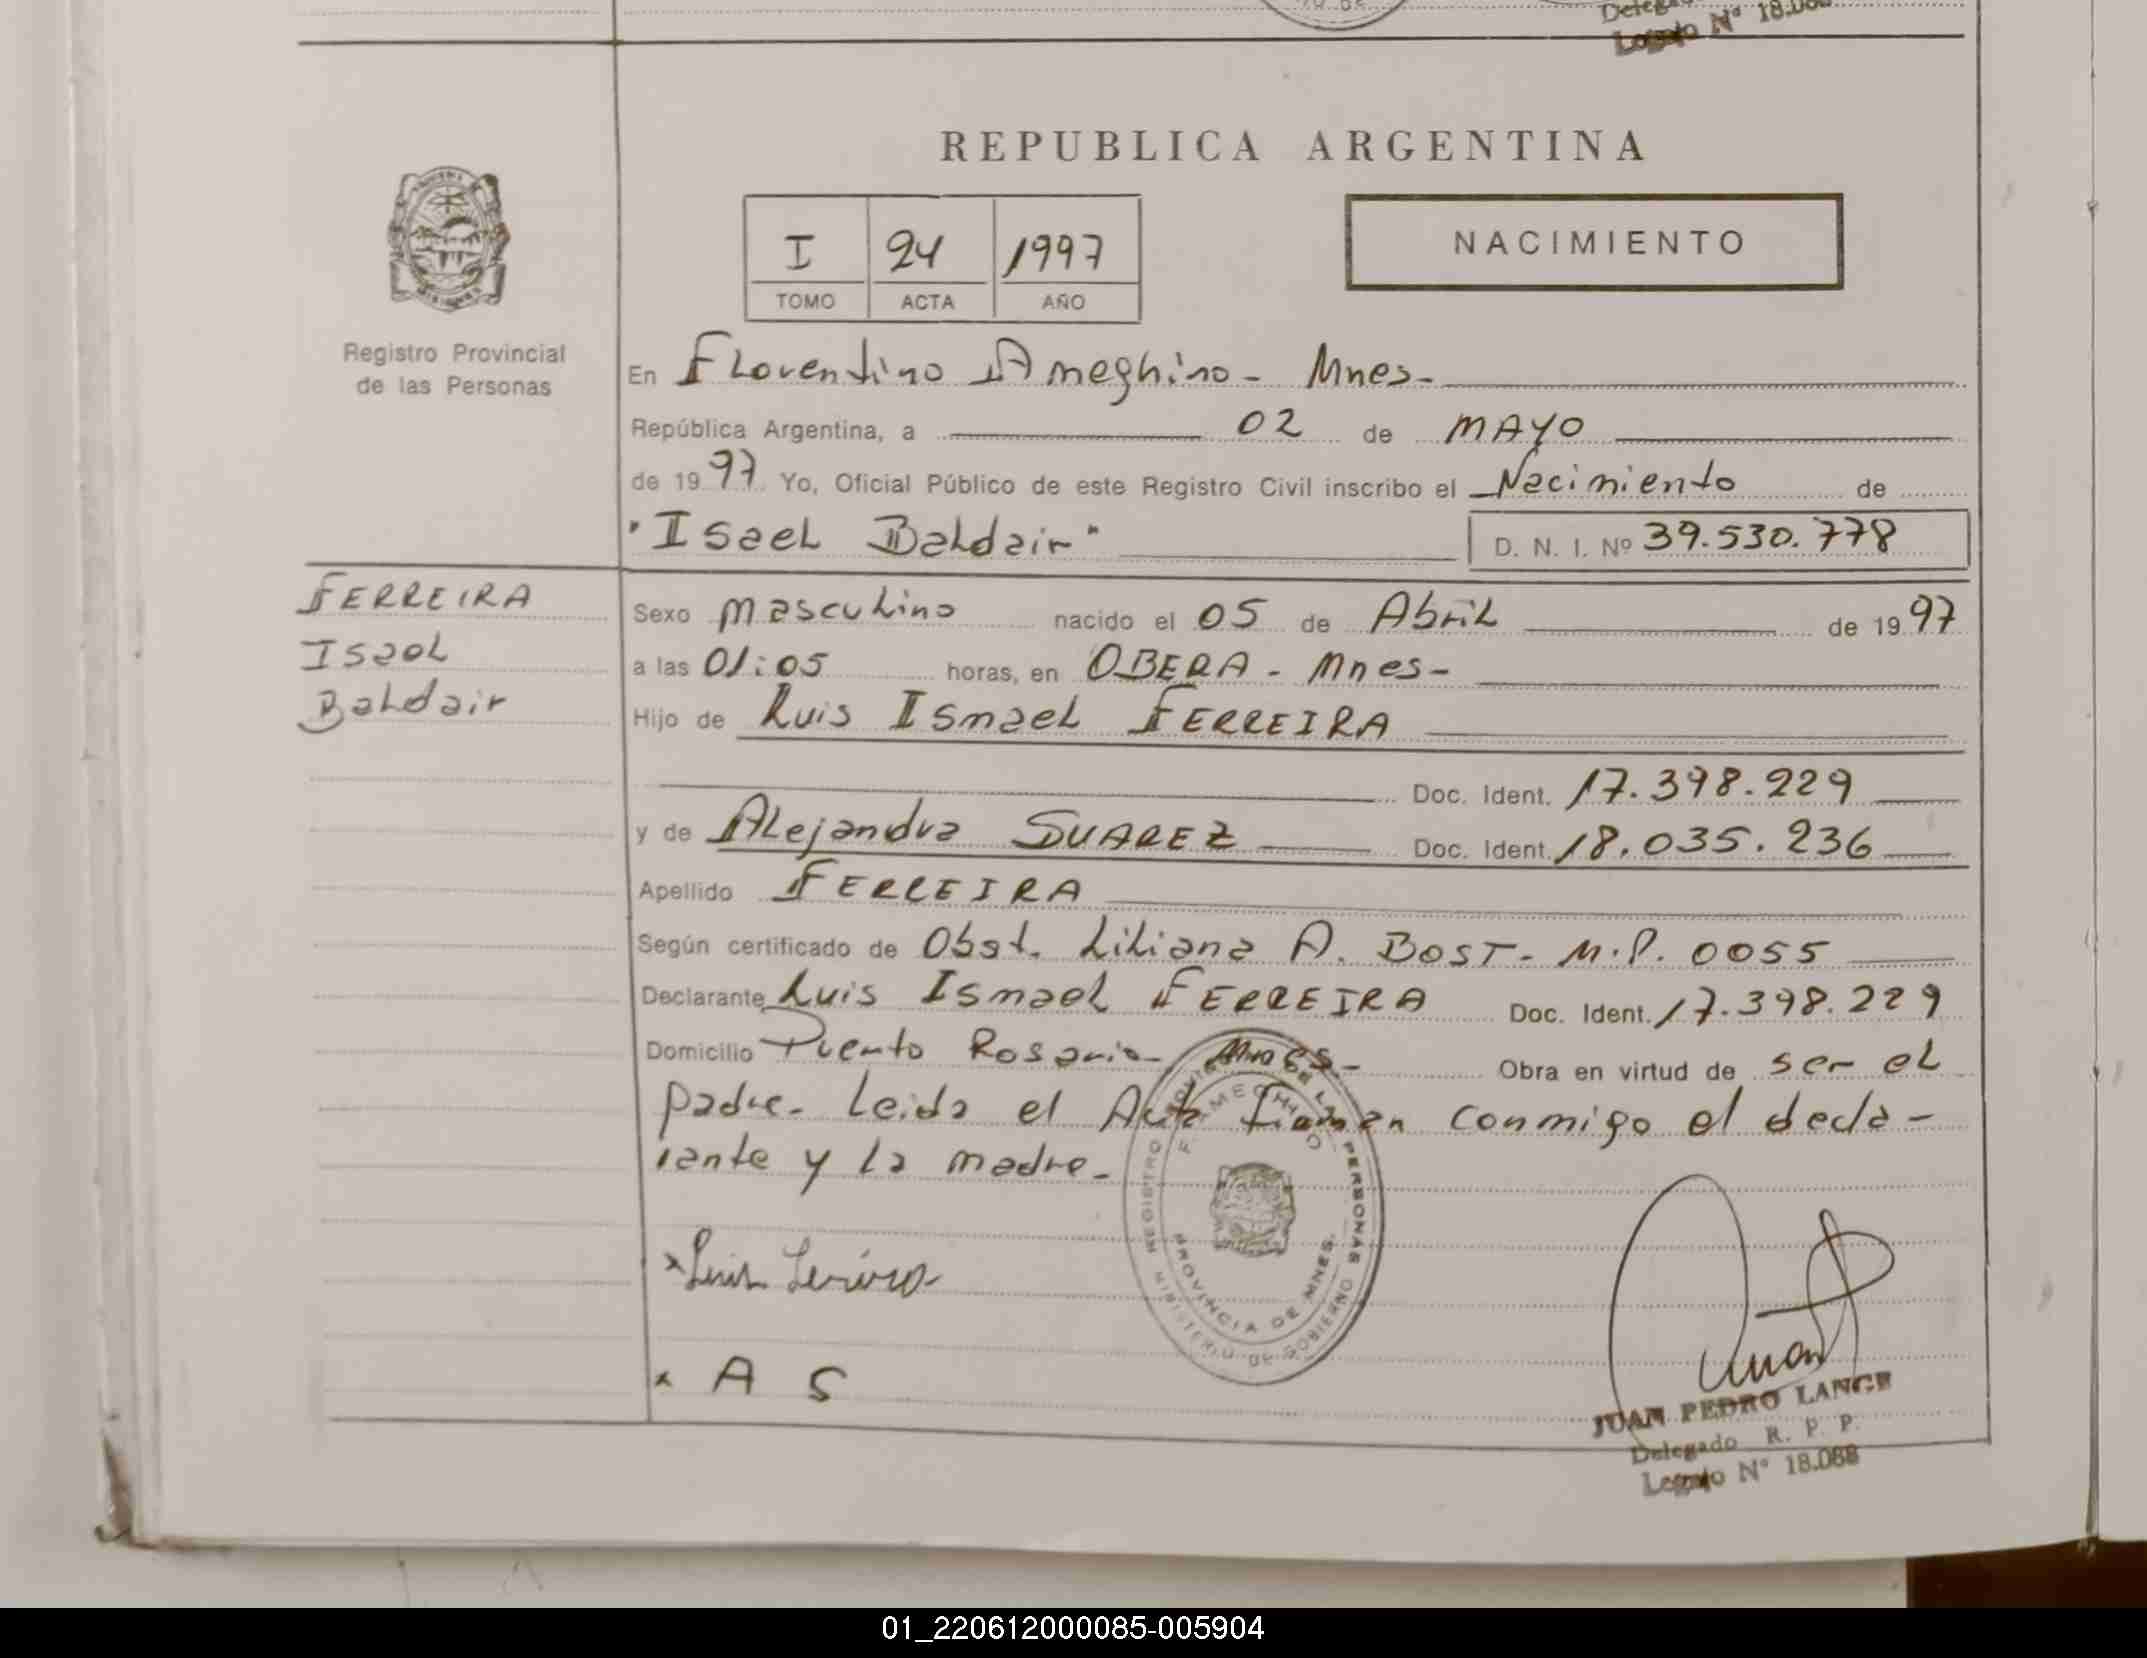 Delegado
Legajo Nº 18.088
REPUBLICA ARGENTINA
I 24 1997
TOMO ACTA AÑO
NACIMIENTO
Registro Provincial
de las Personas
En Florentino Ameghino - Mnes-
República Argentina, a 02 de MAYO
de 1997 Yo, Oficial Público de este Registro Civil inscribo el Nacimiento de
"Isael Baldair" D. N. I. Nº 39.530.778
FERREIRA
Isael
Baldair
Sexo masculino nacido el 05 de Abril de 1997
a las 01:05 horas, en OBERA - Mnes-
Hijo de Luis Ismael FERREIRA
Doc. Ident. 17.398.229
y de Alejandra SUAREZ Doc. Ident. 18.035.236
Apellido FERREIRA
Según certificado de Obst. Liliana A. BOST- M.P. 0055
Declarante Luis Ismael FERREIRA Doc. Ident. 17.398.229
Domicilio Puerto Rosario- Mnes- Obra en virtud de ser el
padre- Leida el Acta Firman conmigo el decla-
rante y la madre-
REGISTRO PROVINCIAL DE LAS PERSONAS
F. AMEGHINO
PROVINCIA DE MNES.
MINISTERIO DE GOBIERNO
x Luis Ferreira
x A S
JUAN PEDRO LANGE
Delegado R. P. P.
Legajo Nº 18.088
01_220612000085-005904